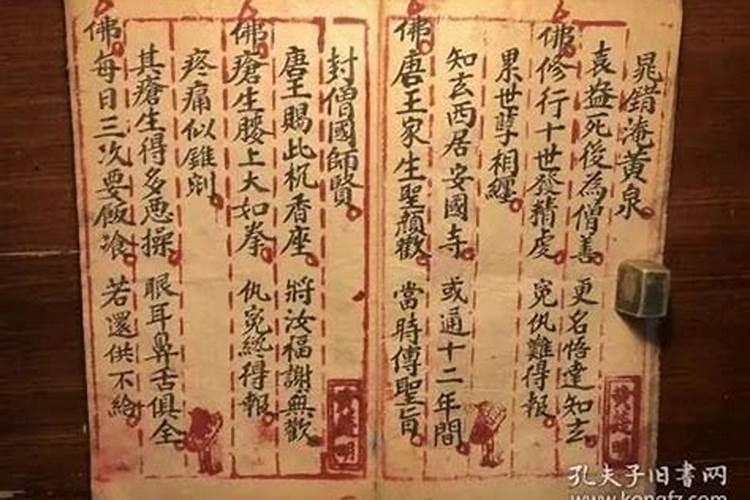 晁錯淹黃泉
袁盎死後為僧善 更名悟達知玄
佛修行十世發精虔 冤仇難得報
累世孽相纏
知玄西居安國寺 或通十二年間
佛唐王家生聖顏歡 當時傳聖旨
封僧國師賢
唐王賜此杌香座 將汝福謝無歡
佛瘡生腰上大如拳 仇冤終得報
疼痛似錐剜
其瘡生得多恶操 眼耳鼻舌俱全
佛每日三次要飯飡 若還供不給
孔夫子旧书网
www.kongfz.com